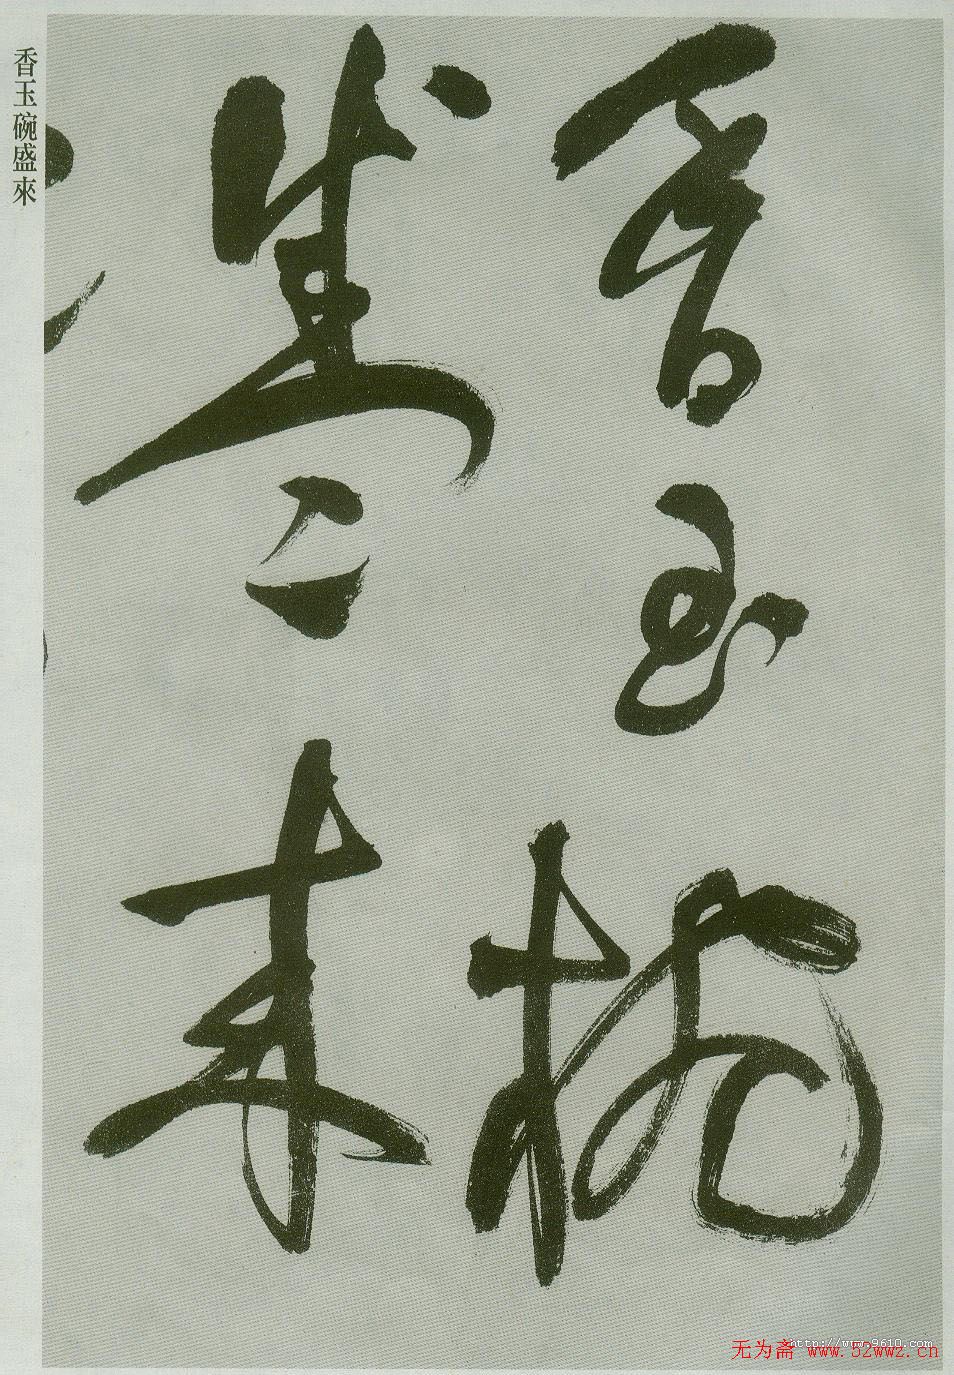 香玉椀
盛来
香玉碗盛來
http://www.9610.com
无为斋 www.52wwz.cn